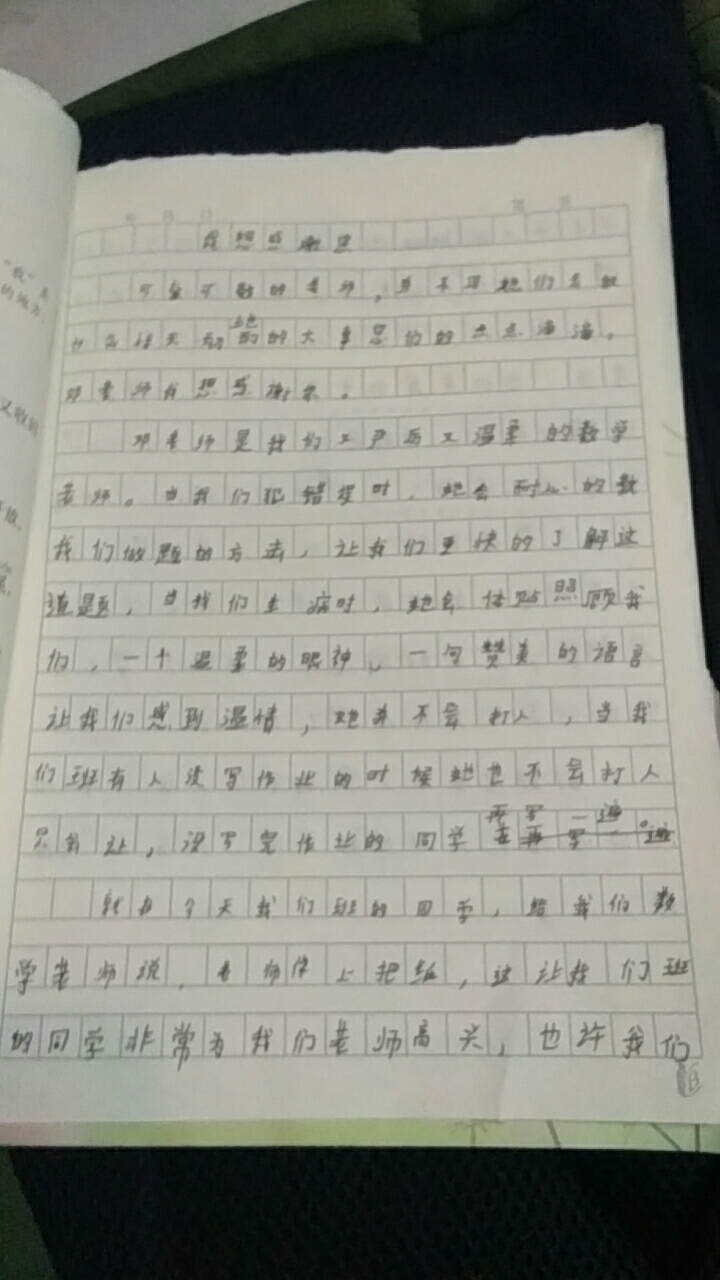 我想感谢您
可
的老师,
们
什么
的大事
们的点点滴滴。
邓老师我想感谢您。
邓老师是我们又严厉又温柔的数学
老师。当我们犯错误时,她会耐心的教
我们做题的方法,让我们更快的了解这
道题,当我们生病时,她会体贴照顾我
们,一个温柔的眼神、一句赞美的语言
让我们感到温情,她并不会打人,当我
们班有人没写作业的时候她也不会打人
只会让,没写完作业的同学再写一遍。
就在今天我们班的同学,给我们数
学老师说,老师
上把
,这让我们班
的同学非常为我们老师高兴,也许我们
"我"是
的地方,
又收